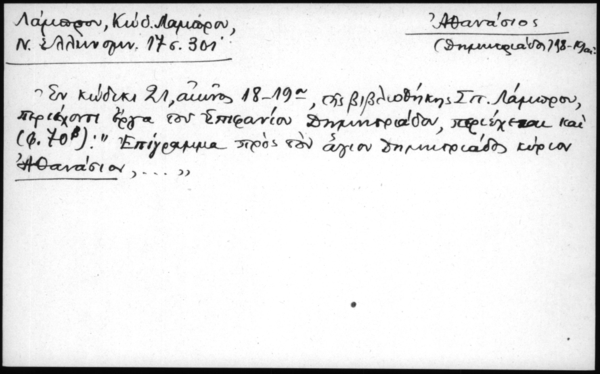 Λάμπρου, Κώδ. Λάμπρου,
Ν. Ἑλληνομν. 17 σ. 301
Ἀθανάσιος
(Δημητριάδος) 18-19 αι.
Ἐν κώδικι 21, αἰῶνος 18-19ου, τῆς βιβλιοθήκης Σπ. Λάμπρου,
περιέχοντι ἔργα τοῦ Ἐπιφανίου Δημητριάδου, περιέχεται καὶ
(φ. 70β): " Ἐπίγραμμα πρὸς τὸν ἅγιον Δημητριάδος κύριον
Ἀθανάσιον, ... „